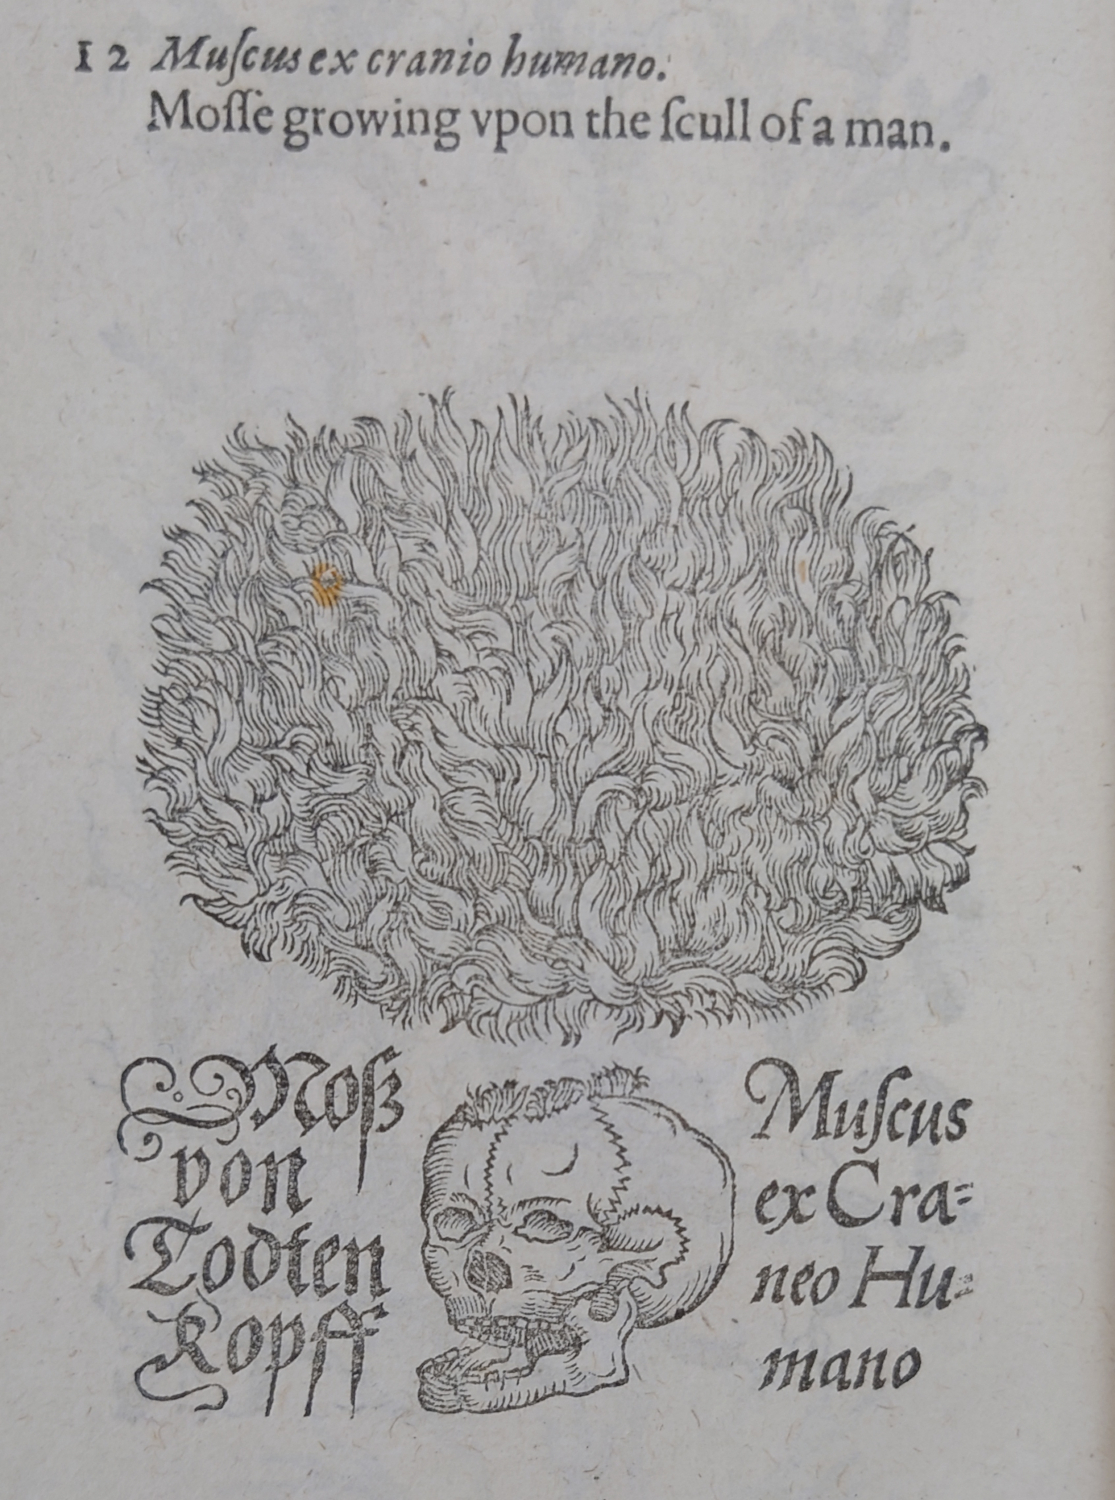 12 Muſcus ex cranio humano.
Moſſe growing vpon the ſcull of a man.
Moſz
von
Todten
Kopff
Muſcus
ex Cra=
neo Hu=
mano